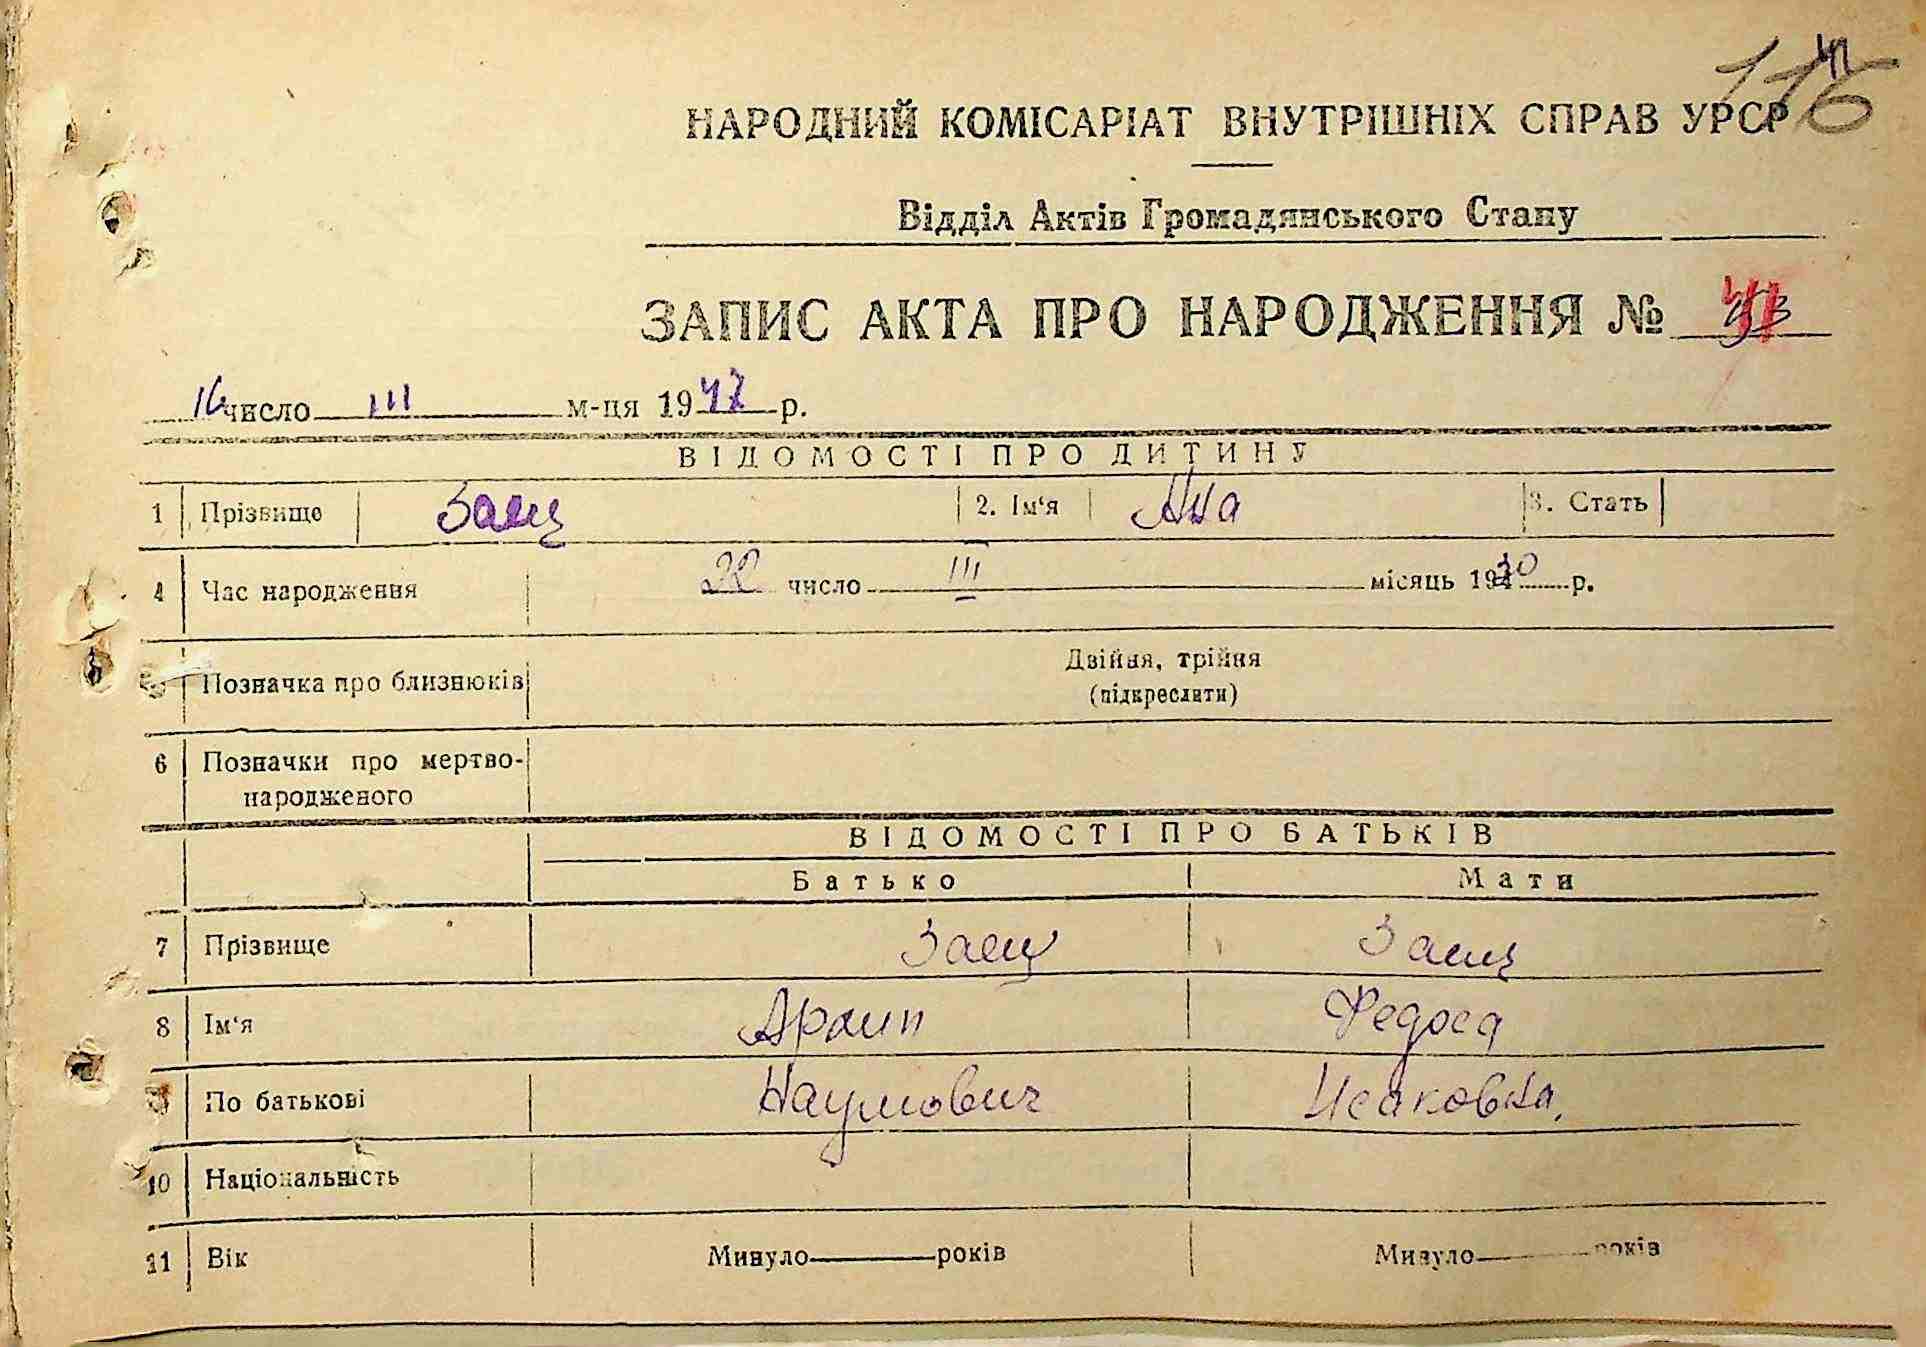 116
НАРОДНИЙ КОМІСАРІАТ ВНУТРІШНІХ СПРАВ УРСР
Відділ Актів Громадянського Стану
ЗАПИС АКТА ПРО НАРОДЖЕННЯ №
16 число III м-ця 1947 р.
ВІДОМОСТІ ПРО ДИТИНУ
1 Прізвище Заец 2. Ім'я Ана 3. Стать
4 Час народження 22 число III місяць 1930 р.
5 Позначка про близнюків Двійня, трійня
(підкреслити)
6 Позначки про мертво-
народженого
ВІДОМОСТІ ПРО БАТЬКІВ
Батько Мати
7 Прізвище Заец Заец
8 Ім'я Архип Федоса
9 По батькові Наумович Исаковна
10 Національність
11 Вік Минуло років Минуло років